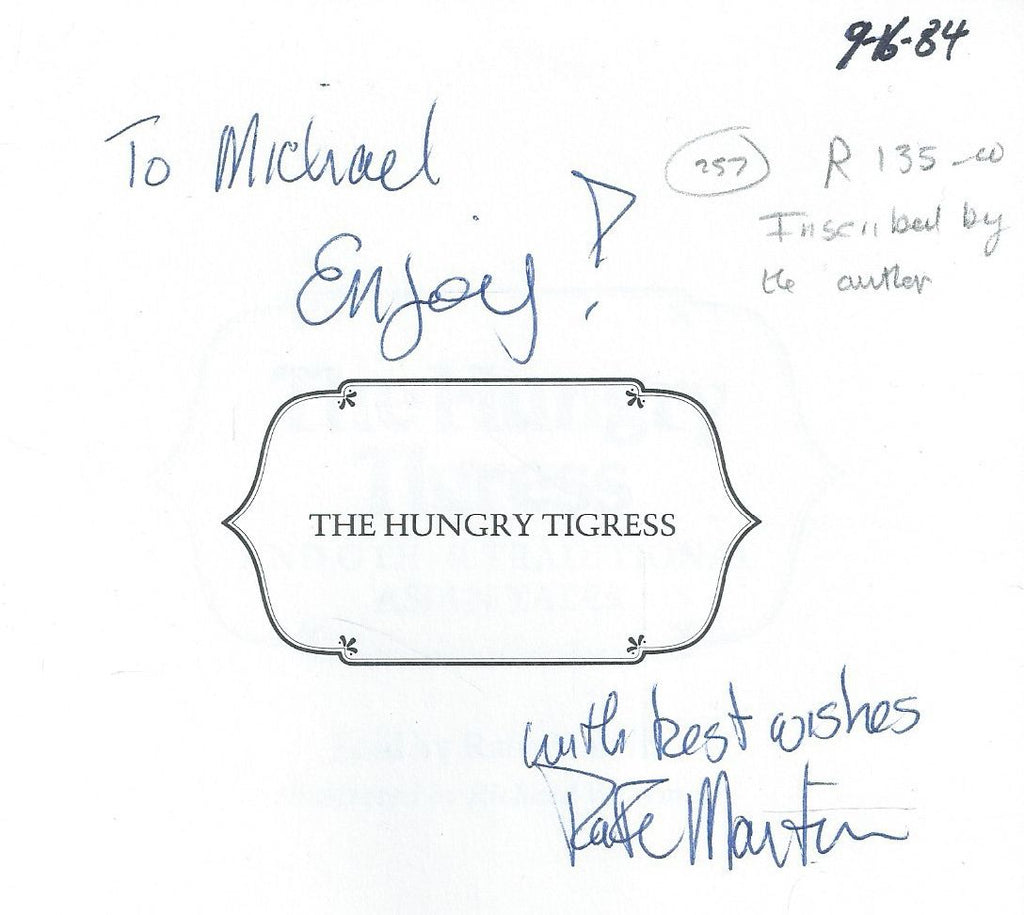 9-16-84
To Michael
257 R 135-00
Enjoy!
Inscribed by
the author
THE HUNGRY TIGRESS
with best wishes
Rafe Martin